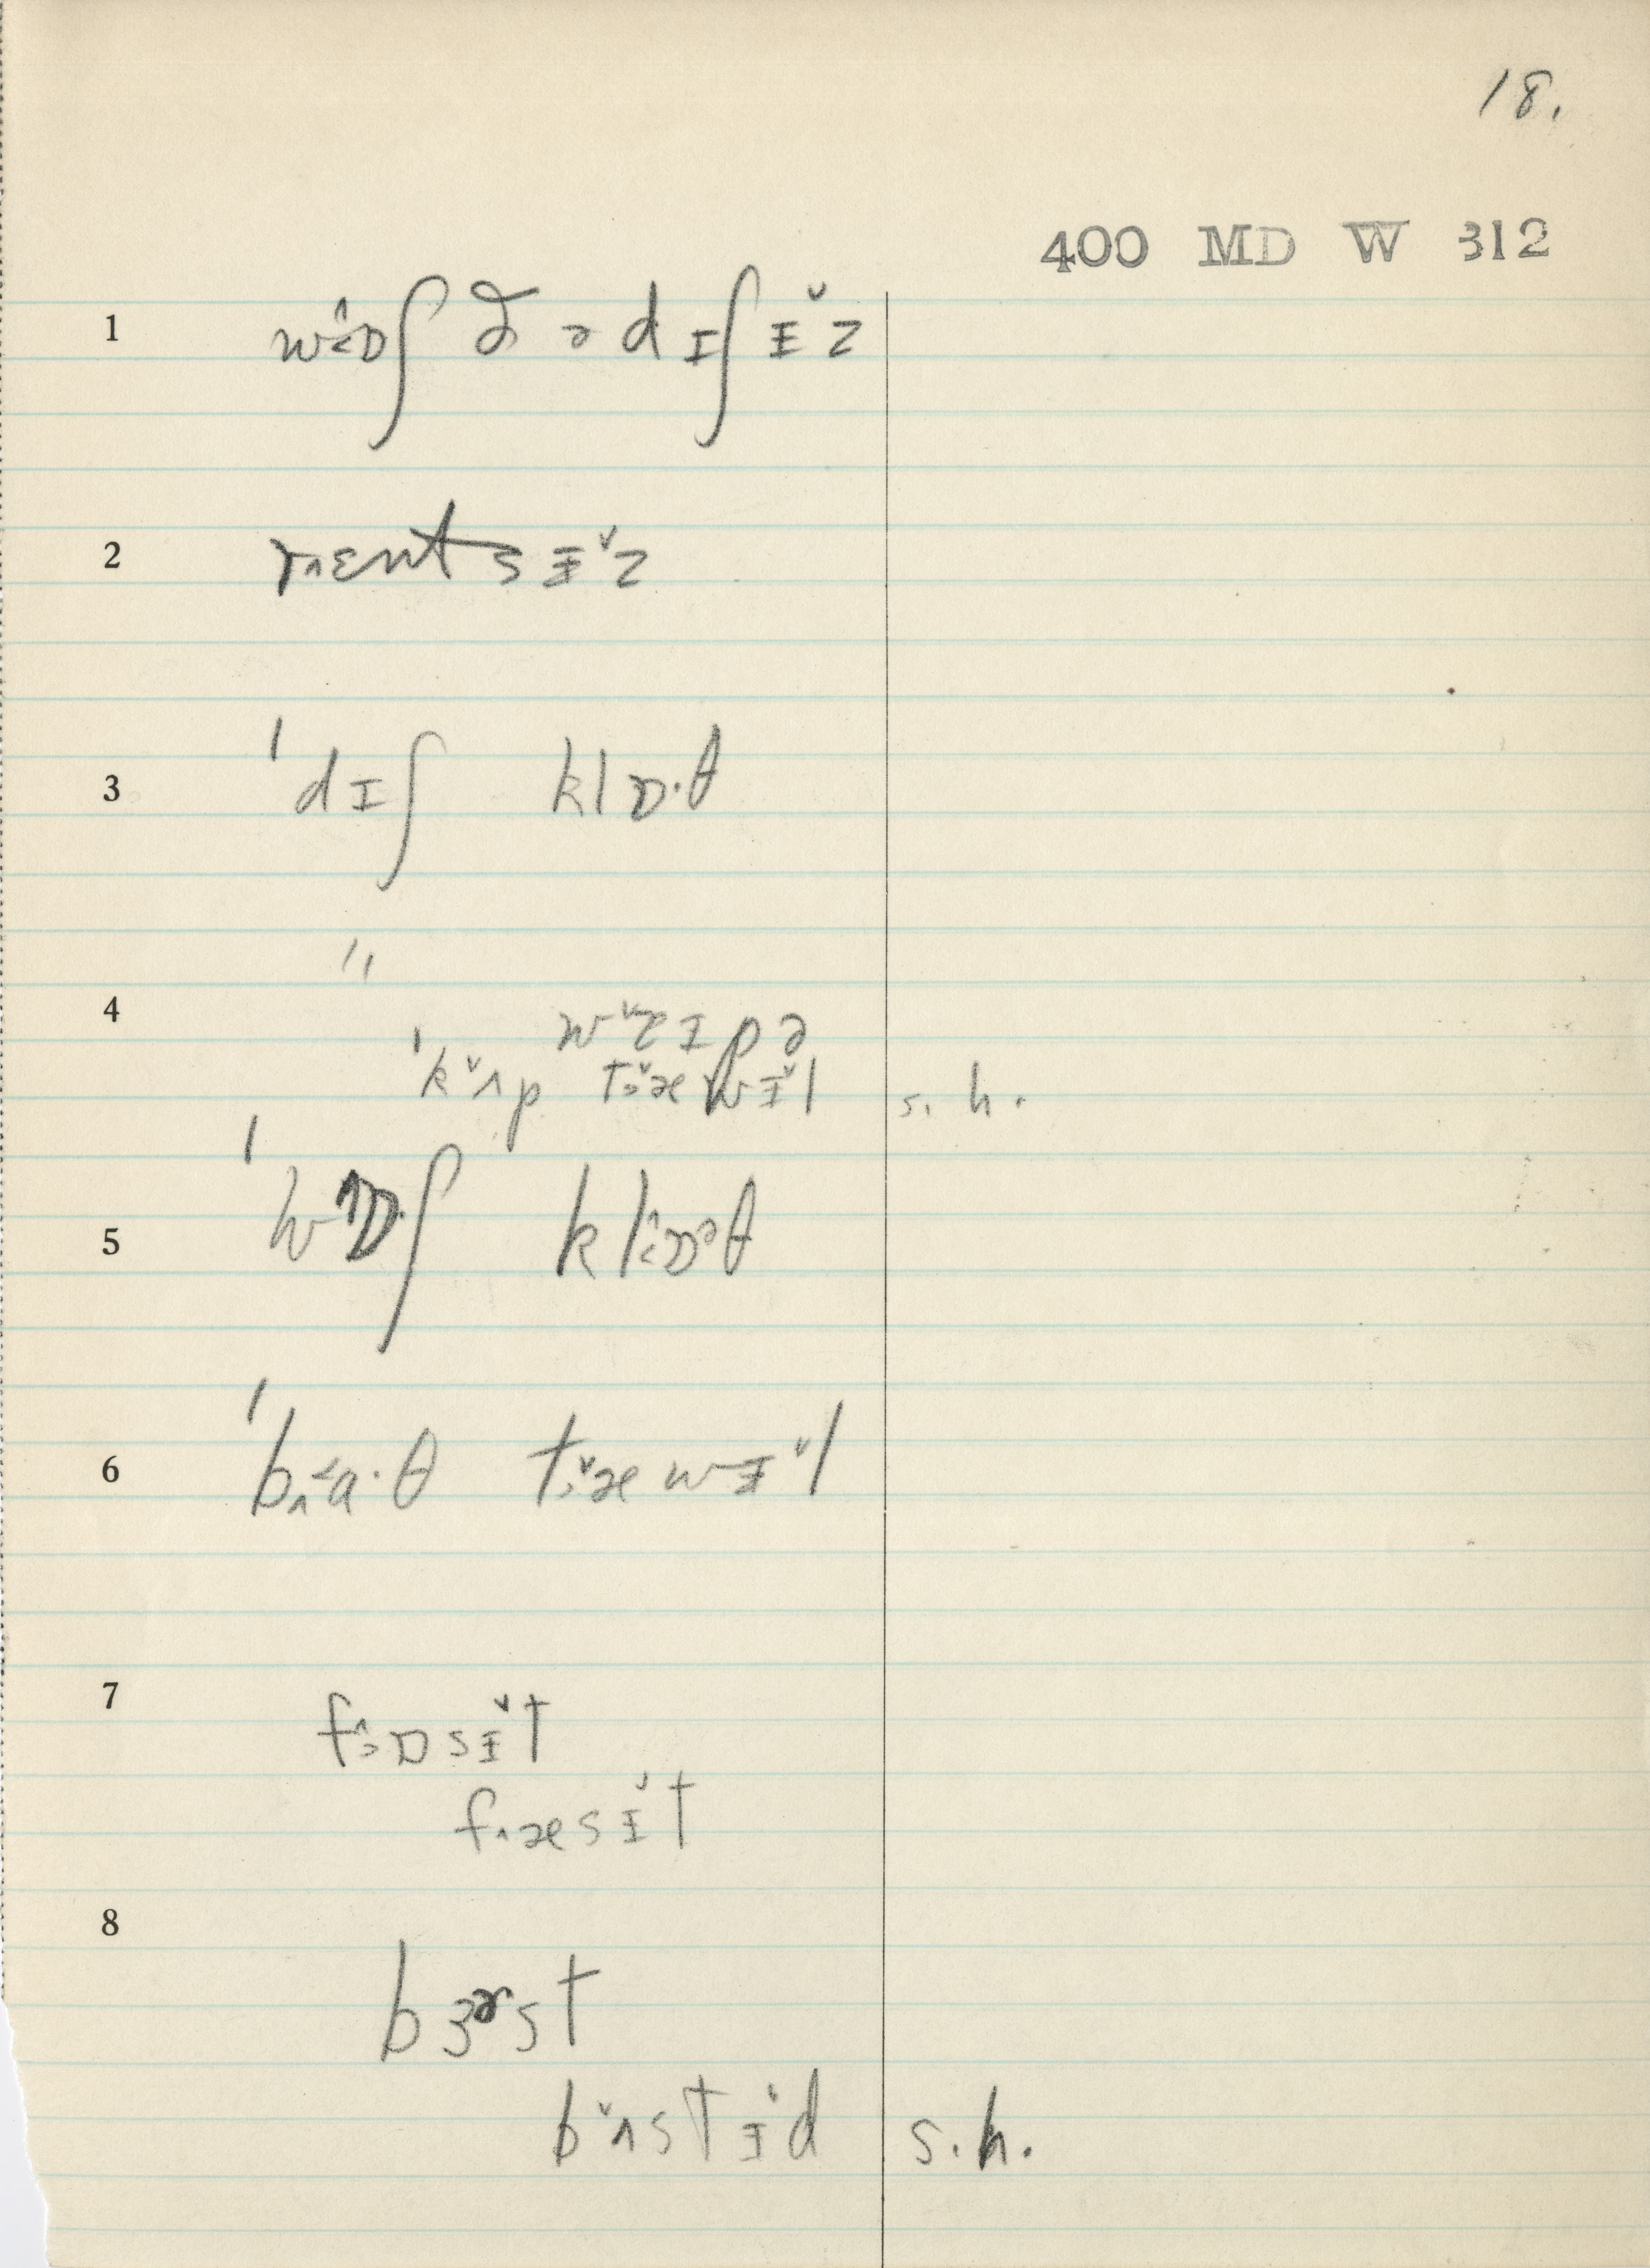 18.
400 MD W 312
1 wɒʃ ðə dɪʃɨz
2 rɛntsɨz
3 ˈdɪʃ klɒ·θ
4 "
ˈkʌp tæwɨl s. h.
5 ˈwɒʃ klɒθ
6 ˈba·θ tæwɨl
7 fɒsɨt
fæsɨt
8 bɝst
bʌstɨd s.h.